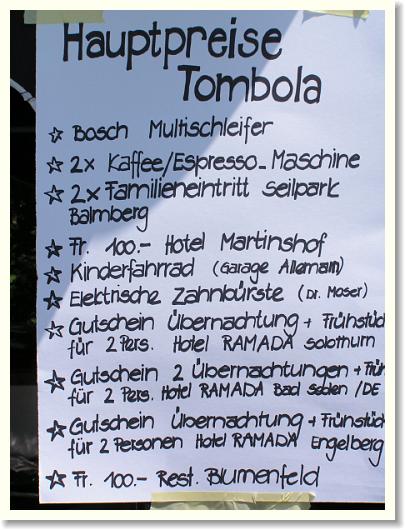 Hauptpreise
Tombola
☆ Bosch Multischleifer
☆ 2x Kaffee/Espresso-Maschine
☆ 2x Familieneintritt Seilpark
Balmberg
☆ Fr. 100.- Hotel Martinshof
☆ Kinderfahrrad (Garage Allemann)
☆ Elektrische Zahnbürste (Dr. Moser)
☆ Gutschein Übernachtung + Frühstück
für 2 Pers. Hotel RAMADA Solothurn
☆ Gutschein 2 Übernachtungen + Früh
für 2 Pers. Hotel RAMADA Bad Soden /DE
☆ Gutschein Übernachtung + Frühstück
für 2 Personen Hotel RAMADA Engelberg
☆ Fr. 100.- Rest. Blumenfeld